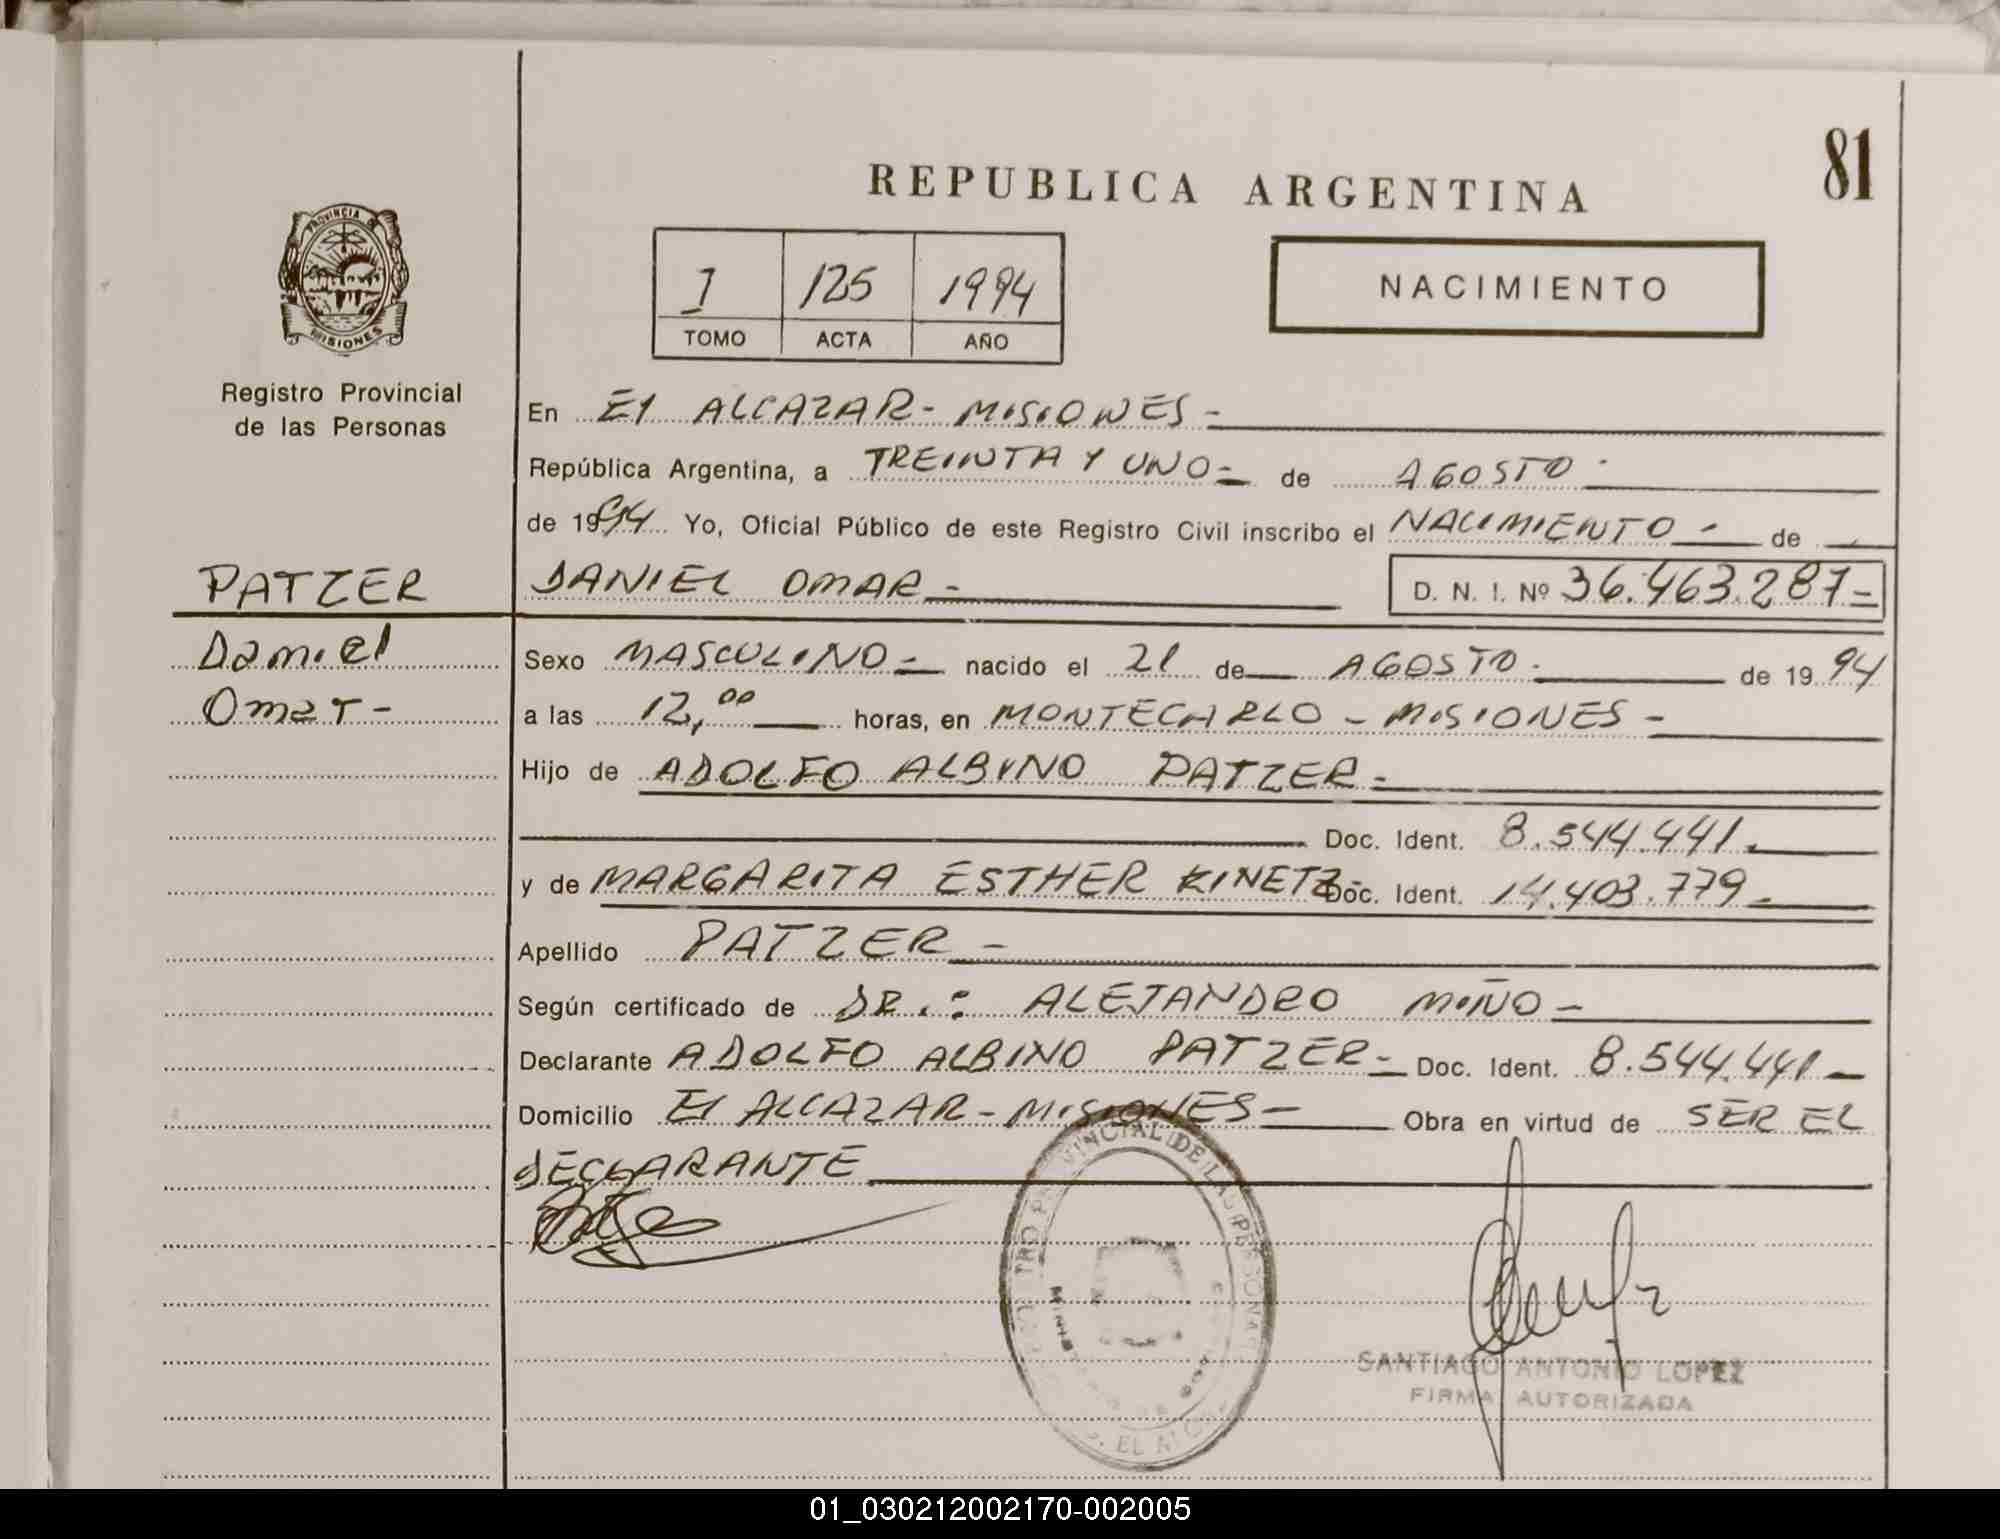 81
REPUBLICA ARGENTINA
PROVINCIA DE
MISIONES
I 125 1994
TOMO ACTA AÑO
NACIMIENTO
Registro Provincial
de las Personas
En El ALCAZAR - MISIONES -
República Argentina, a TREINTA Y UNO - de AGOSTO -
de 1994 Yo, Oficial Público de este Registro Civil inscribo el NACIMIENTO - de
PATZER
DANIEL OMAR - D. N. I. Nº 36.463.287 =
Daniel
Omar -
Sexo MASCULINO - nacido el 21 de AGOSTO - de 1994
a las 12,00 horas, en MONTECARLO - MISIONES -
Hijo de ADOLFO ALBINO PATZER -
Doc. Ident. 8.544.441.
y de MARGARITA ESTHER KINETZ - Doc. Ident. 14.403.779 -
Apellido PATZER -
Según certificado de DR.: ALEJANDRO MIÑO -
Declarante ADOLFO ALBINO PATZER - Doc. Ident. 8.544.441 -
Domicilio El ALCAZAR - MISIONES - Obra en virtud de SER EL
DECLARANTE
PROVINCIAL DE LAS PERSONAS
SANTIAGO ANTONIO LOPEZ
FIRMA AUTORIZADA
01_030212002170-002005